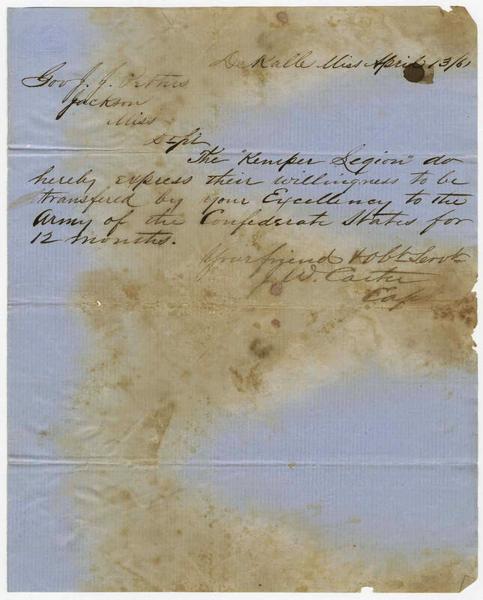 DeKalb Miss April 13/61
Gov J. J. Pettus
Jackson
Miss
The "Kemper Legion" do
hereby express their willingness to be
transfered by your Excellency to the
Army of the Confederate States for
12 months.
Your friend & obt Servt
J. W. Carter
Capt